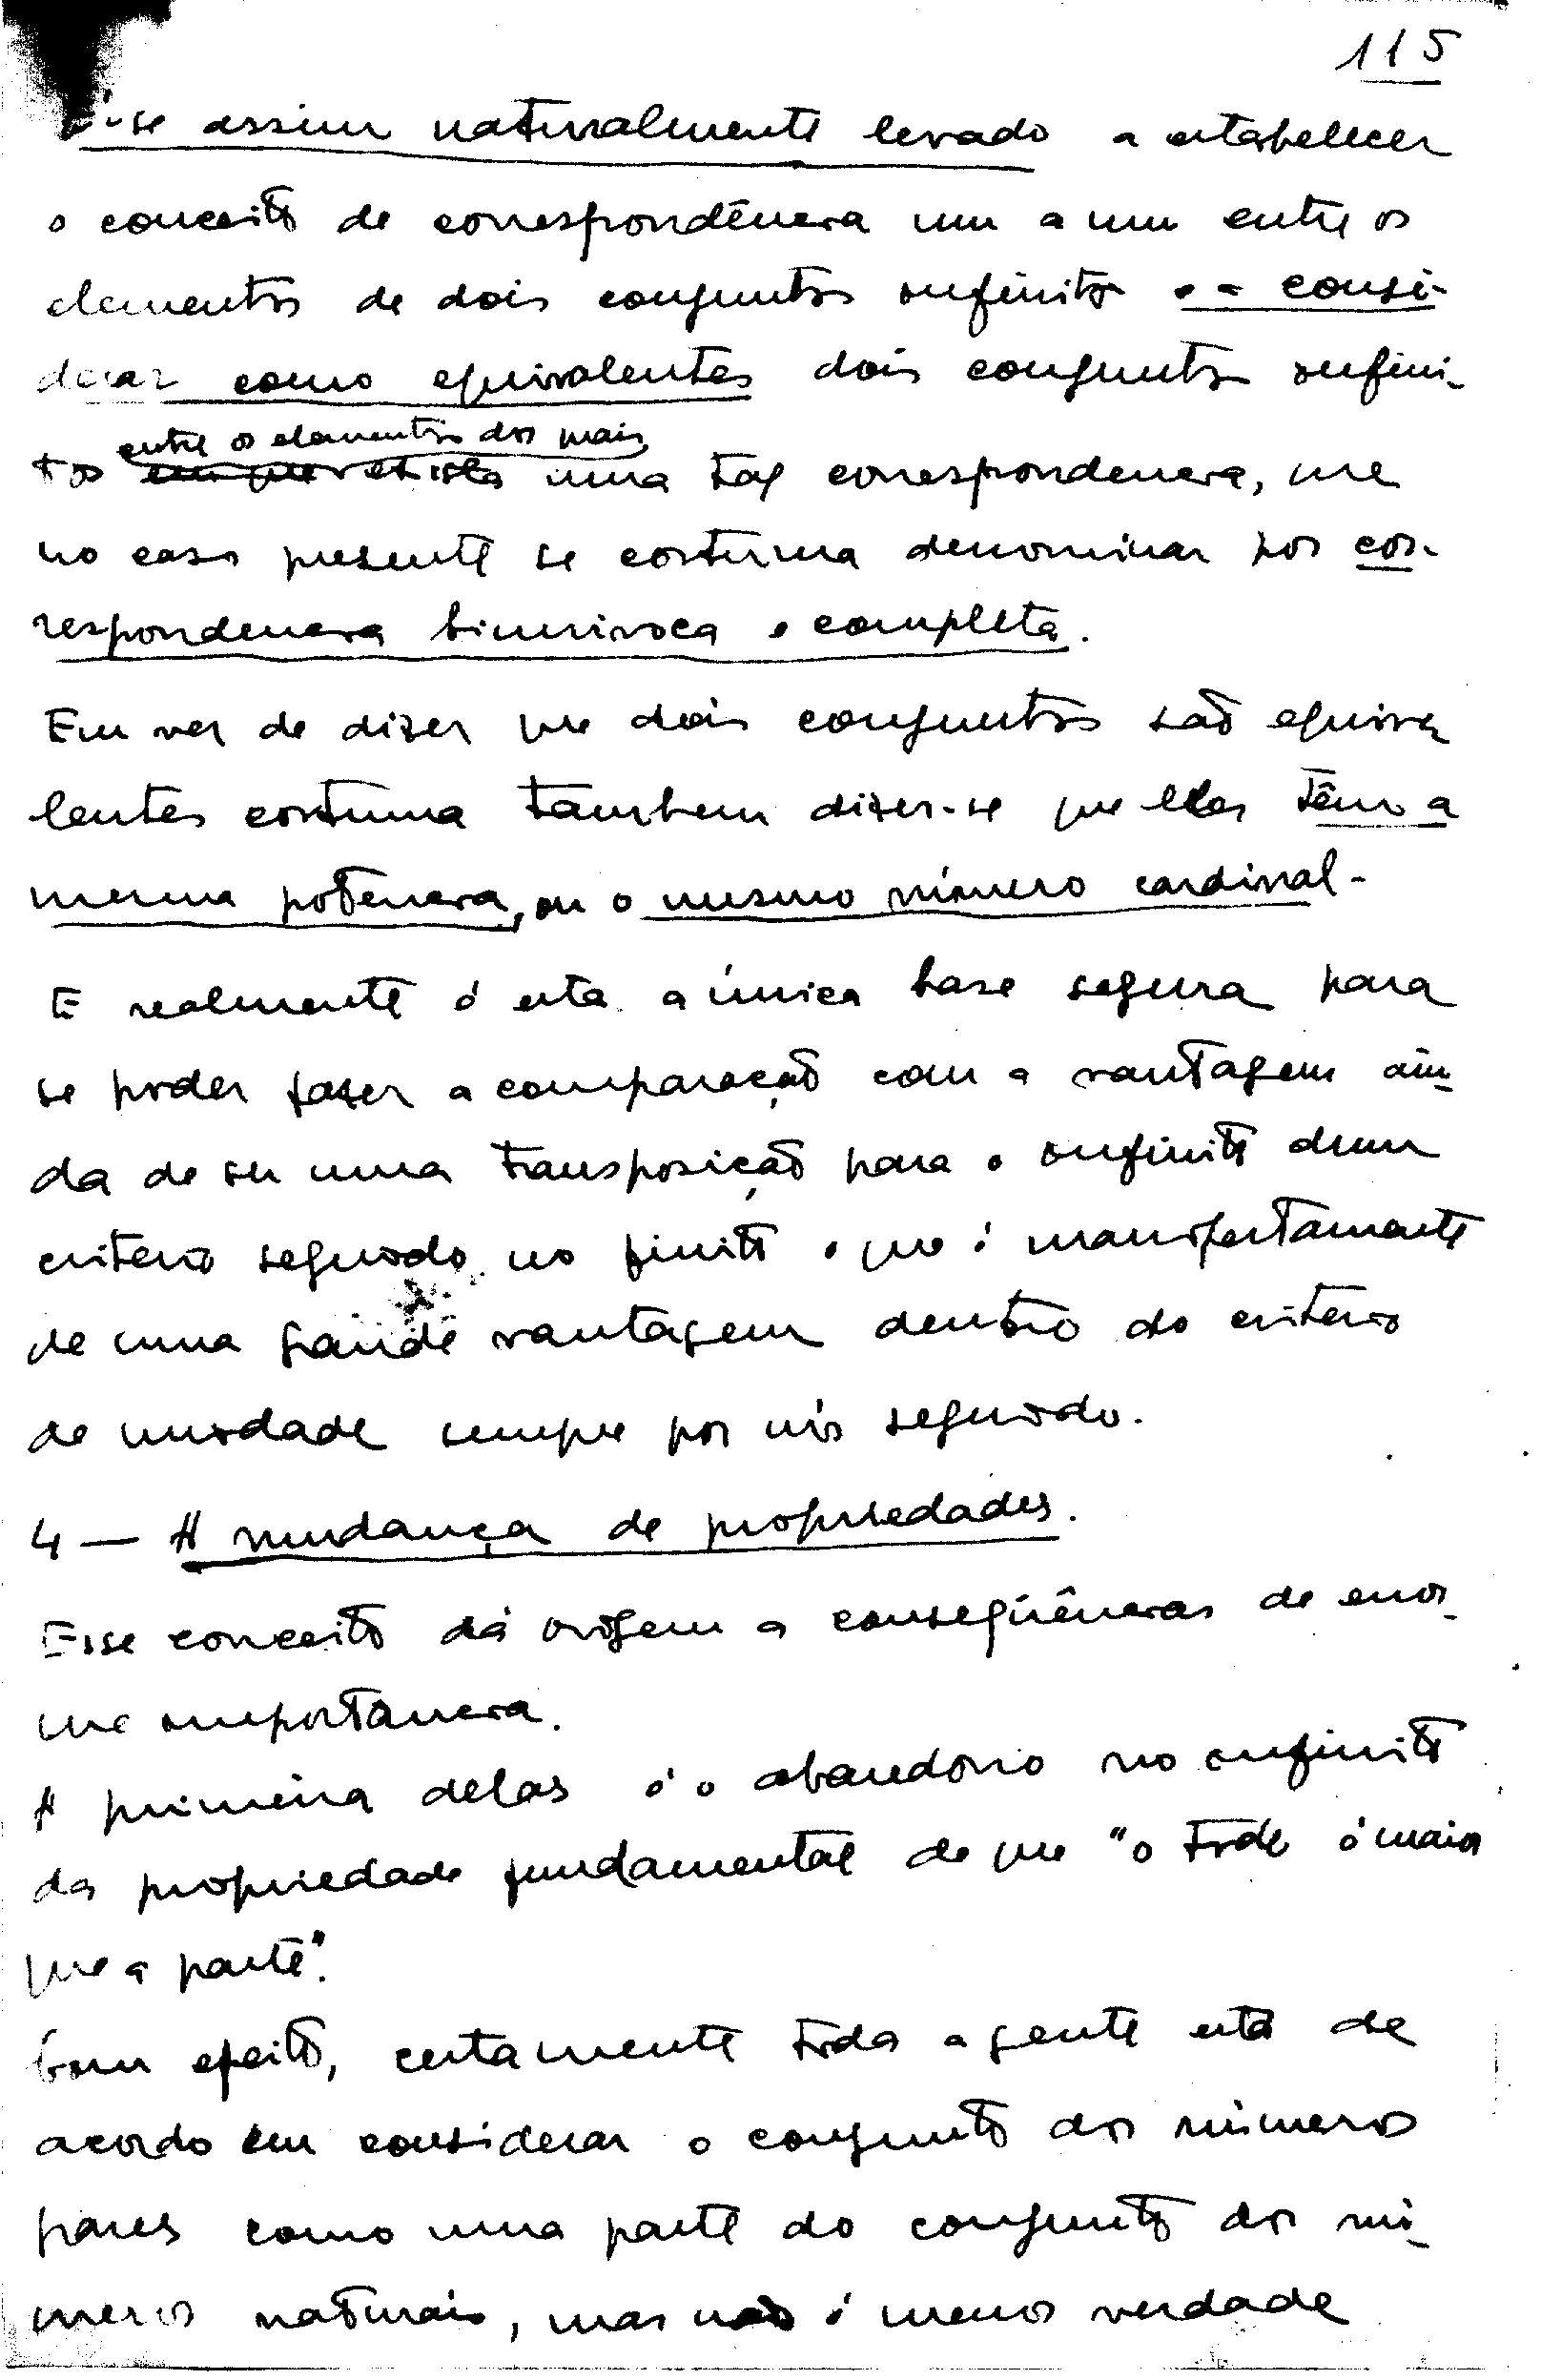 115
É-se assim naturalmente levado a estabelecer
o conceito de correspondência um a um entre os
elementos de dois conjuntos infinitos e a consi-
derar como equivalentes dois conjuntos infini-
entre os elementos dos mais
tos em que exista uma tal correspondencia, que
no caso presente se costuma denominar por cor-
respondencia biunivoca e completa.
Em vez de dizer que dois conjuntos são equiva
lentes costuma tambem dizer-se que eles têm a
mesma potencia, ou o mesmo número cardinal-
E realmente é esta a única base segura para
se poder fazer a comparação com a vantagem ain
da de ser uma transposição para o infinito dum
criterio seguido no finito o que é manifestamente
de uma grande vantagem dentro do criterio
de unidade sempre por nós seguido.
4 — A mudança de propriedades.
Esse conceito dá origem a conseqüências de enor_
me importancia.
A primeira delas é o abandono no infinito
da propriedade fundamental de que "o todo é maior
que a parte".
Com efeito, certamente toda a gente está de
acordo em considerar o conjunto dos números
pares como uma parte do conjunto dos nú_
meros naturais, mas não é menos verdade